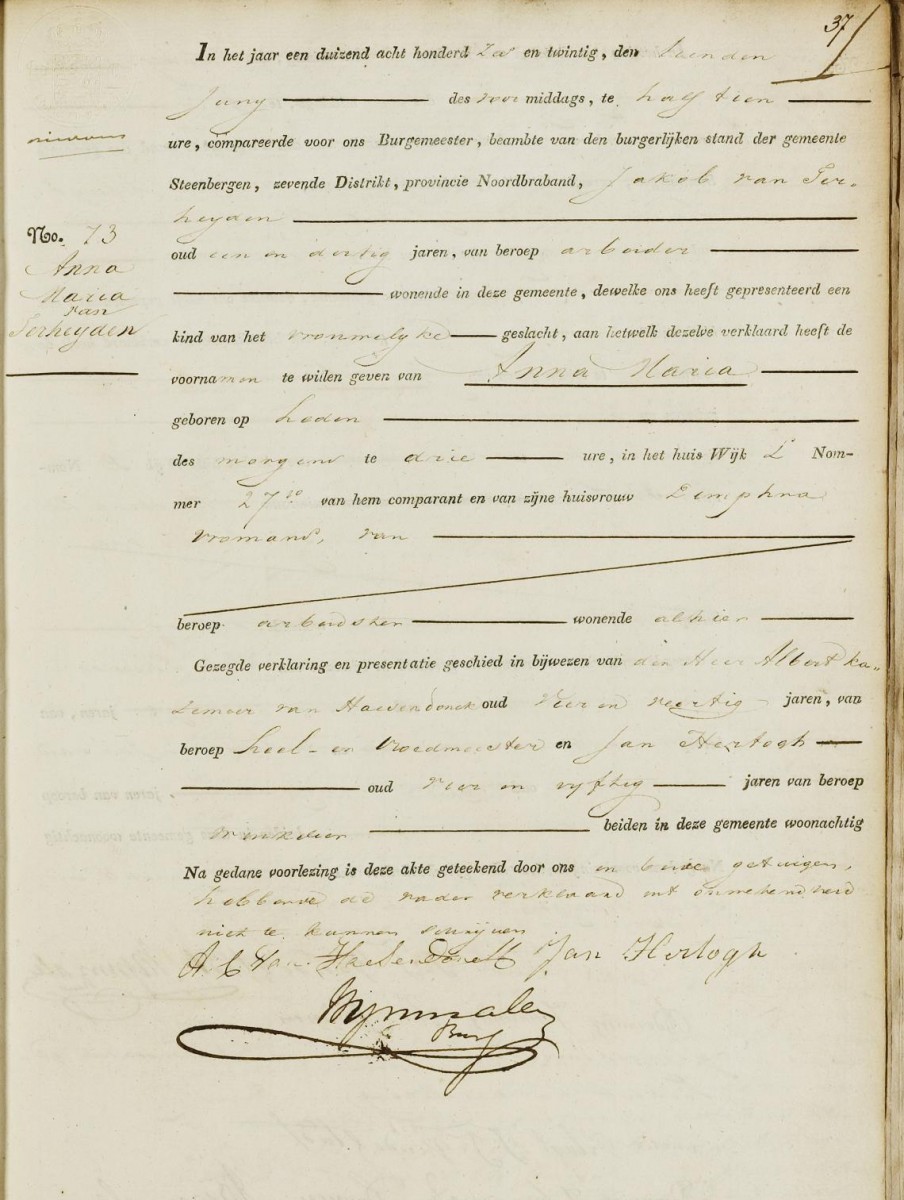 37
In het jaar een duizend acht honderd Zes en twintig, den tienden
Juny des voor middags, te half tien
ure, compareerde voor ons Burgemeester, beambte van den burgerlijken stand der gemeente
Steenbergen, zevende Distrikt, provincie Noordbraband, Jakob van Ter-
heyden
No. 73
Anna
Maria
van
Terheyden
oud een en dertig jaren, van beroep arbeider
wonende in deze gemeente, dewelke ons heeft gepresenteerd een
kind van het vrouwelyke geslacht, aan hetwelk dezelve verklaard heeft de
voornamen te willen geven van Anna Maria
geboren op heden
des morgens te drie ure, in het huis Wijk L Nom-
mer 27 van hem comparant en van zijne huisvrouw Dimphna
vromans, van
beroep arbeidster wonende alhier
Gezegde verklaring en presentatie geschied in bijwezen van den Heer Albert ka-
zemeer van Haevendonck oud vier en veertig jaren, van
beroep heel- en vroedmeester en Jan Hertogh
oud vier en vyftig jaren van beroep
winkelier beiden in deze gemeente woonachtig
Na gedane voorlezing is deze akte geteekend door ons en beide getuigen,
hebbende de vader verklaard uit onwetendheid
niet te kunnen schryven
A C Van Haevendonck Jan Hertogh
Burg